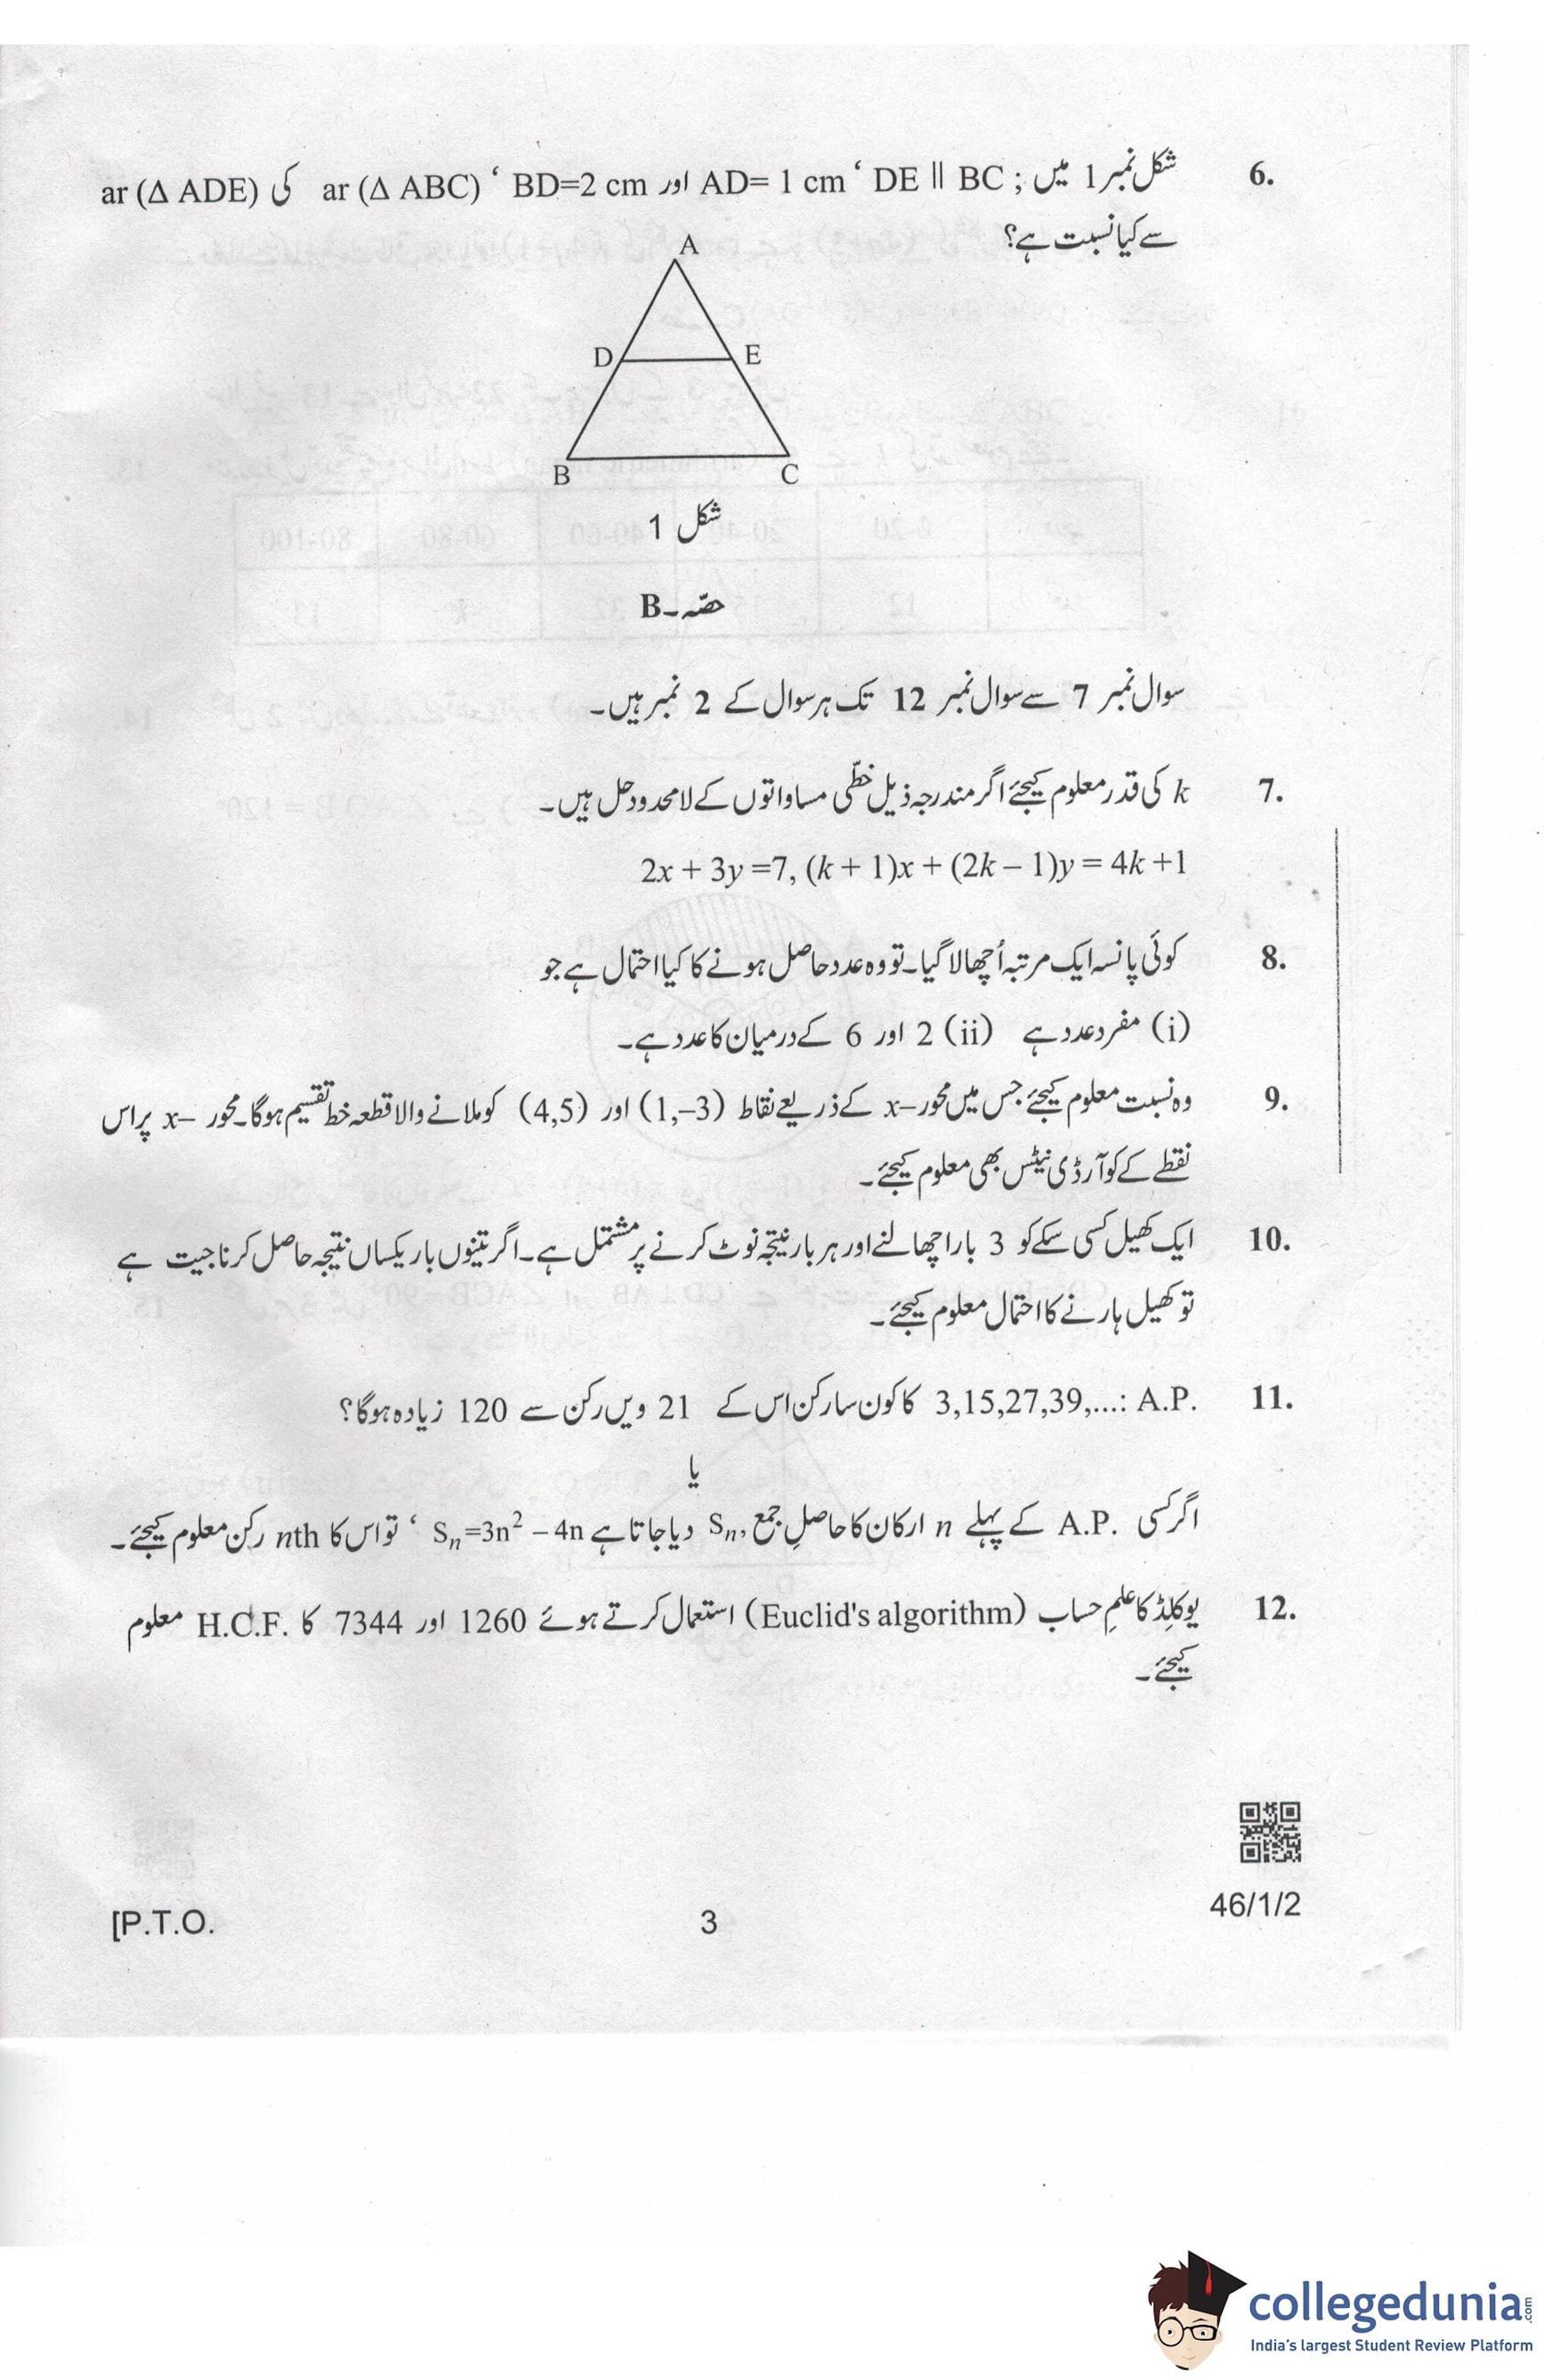 6. شکل نمبر 1 میں ; DE || BC ‘ AD= 1 cm اور BD=2 cm ‘ ar (Δ ABC) کی ar (Δ ADE)
سے کیا نسبت ہے؟
A
D E
B C
شکل 1
حصّہ ـ B
سوال نمبر 7 سے سوال نمبر 12 تک ہر سوال کے 2 نمبر ہیں۔
7. k کی قدر معلوم کیجئے اگر مندرجہ ذیل خطّی مساواتوں کے لامحدود حل ہیں۔
2x + 3y =7, (k + 1)x + (2k – 1)y = 4k +1
8. کوئی پانسہ ایک مرتبہ اُچھالا گیا۔ تو وہ عدد حاصل ہونے کا کیا احتمال ہے جو
(i) مفرد عدد ہے (ii) 2 اور 6 کے درمیان کا عدد ہے۔
9. وہ نسبت معلوم کیجئے جس میں محور–x کے ذریعے نقاط (1,–3) اور (4,5) کو ملانے والا قطعہ خط تقسیم ہوگا۔ محور –x پر اس
نقطے کے کوآرڈی نیٹس بھی معلوم کیجئے۔
10. ایک کھیل کسی سکے کو 3 بار اچھالنے اور ہر بار نتیجہ نوٹ کرنے پر مشتمل ہے۔ اگر تینوں بار یکساں نتیجہ حاصل کرنا جیت ہے
تو کھیل ہارنے کا احتمال معلوم کیجئے۔
11. A.P. :...,3,15,27,39 کا کون سا رکن اس کے 21 ویں رکن سے 120 زیادہ ہوگا؟
یا
اگر کسی A.P. کے پہلے n ارکان کا حاصلِ جمع Sn, دیا جاتا ہے Sn=3n² – 4n ‘ تو اس کا nth رکن معلوم کیجئے۔
12. یوکلِڈ کا علمِ حساب (Euclid's algorithm) استعمال کرتے ہوئے 1260 اور 7344 کا H.C.F. معلوم
کیجئے۔
46/1/2
3
[P.T.O.
collegedunia.com
India's largest Student Review Platform